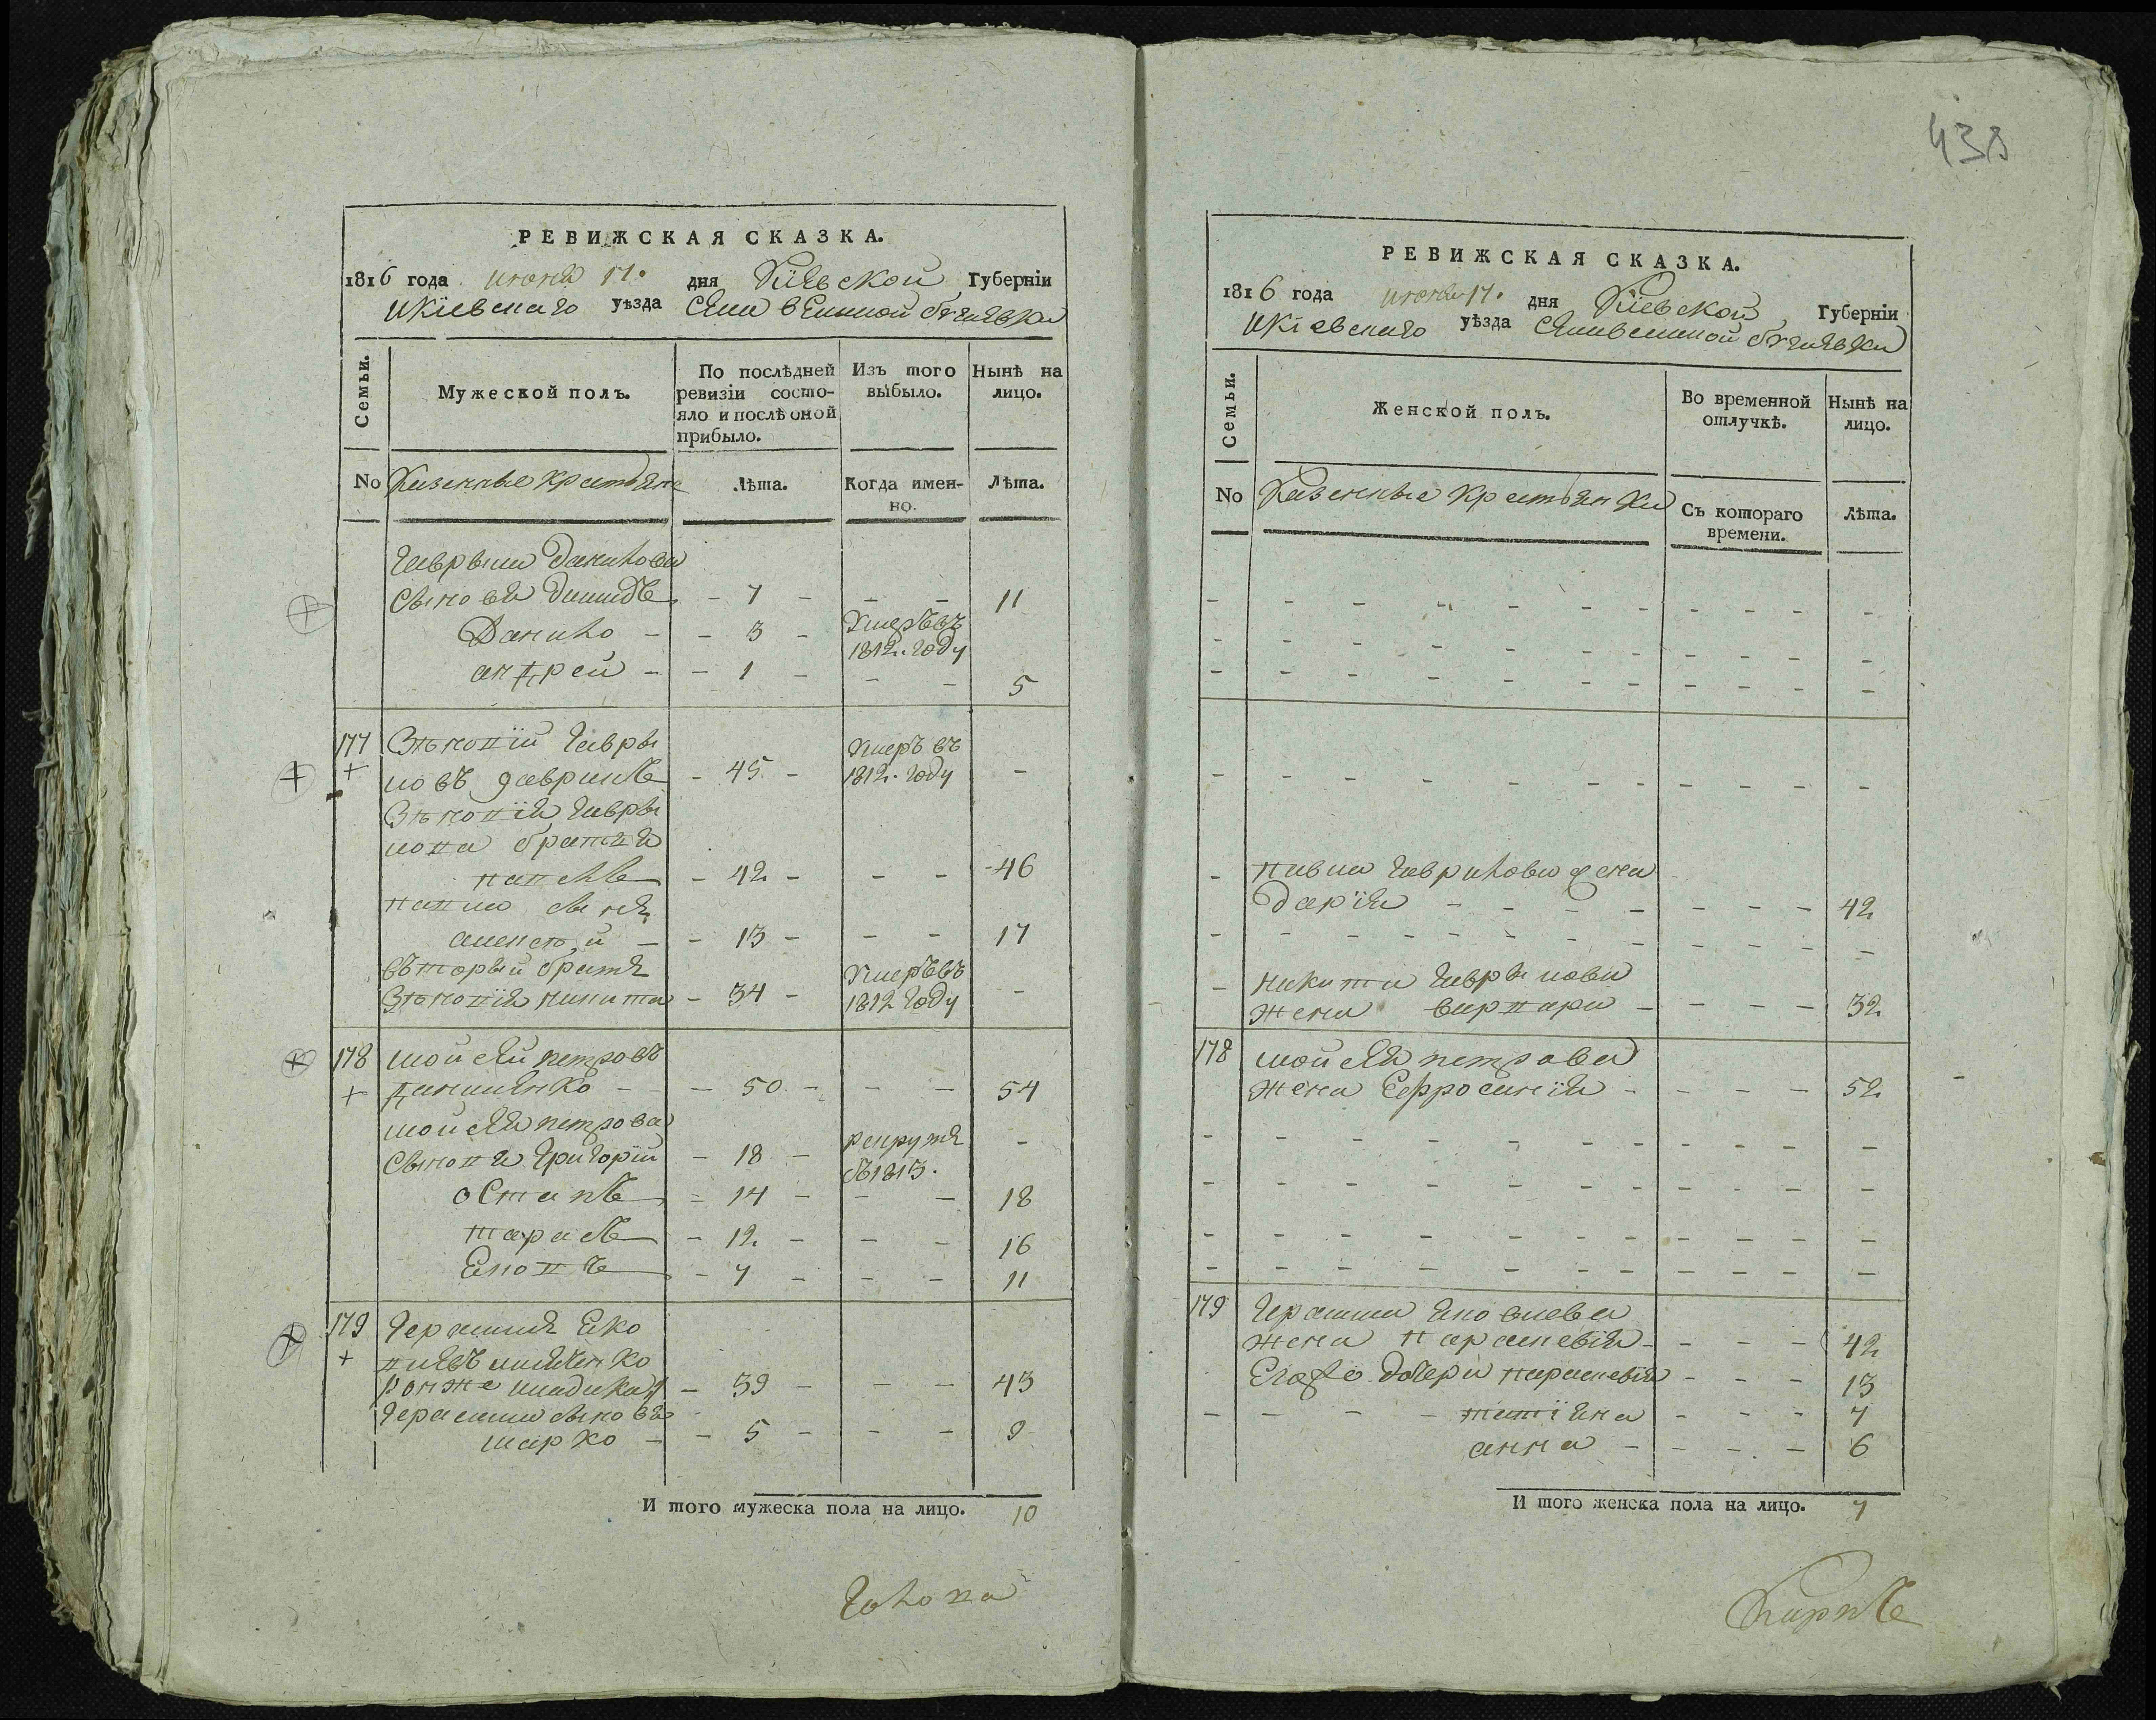 438
РЕВИЖСКАЯ СКАЗКА.
1816 года июня 17. дня Киевской Губерніи
И Кіевскаго уѣзда
Семьи.
Мужеской полъ.
По послѣдней ревизіи состояло и послѣ оной прибыло.
Изъ того выбыло.
Нынѣ на лицо.
No Казенные крестьяне
Лѣта.
Когда именно.
Лѣта.
Гаврыла Данилова
сынова Демидъ - 7 - - - 11
Данило - - 3 - Умеръ въ 1812. году
андрей - - 1 - - - 5
177 Гавры
ловъ - 45 - Умеръ въ 1812. году -
Гаврылова братья
павелъ - 42 - - - 46
павла сынъ
алексѣй - - 13 - - - 17
вторый братъ
никита - 34 - Умеръ въ 1812 году -
178 мойсей петровъ
- - - 50 - - - 54
мойсея петрова
сыновья григорій - 18 - рекрутъ въ 1813. -
остапъ - 14 - - - 18
тарасъ - 12 - - - 16
- 7 - - - 11
179 Герасимъ Яко
влевъ
- 39 - - - 43
Герасима сынова
марко - - 5 - - - 9
И того мужеска пола на лицо. 10
Голова
РЕВИЖСКАЯ СКАЗКА.
1816 года июня 17. дня Кіевской Губерніи
И Кіевскаго уѣзда
Семьи.
Женской полъ.
Во временной отлучкѣ.
Нынѣ на лицо.
No Казенные крестьянки
Съ котораго времени.
Лѣта.
павла Гаврилова жена
дарія - - - - - - - 42
никиты Гаврылова
жена варвара - - - - 32
178 мойсея петрова
жена Ефросинія - - - - 52
179 Герасима Яковлева
жена параскевія - - - - 42
Егоже дочери параскевія - - - 13
татіяна - - - 7
анна - - - - 6
И того женска пола на лицо. 7
Карпъ